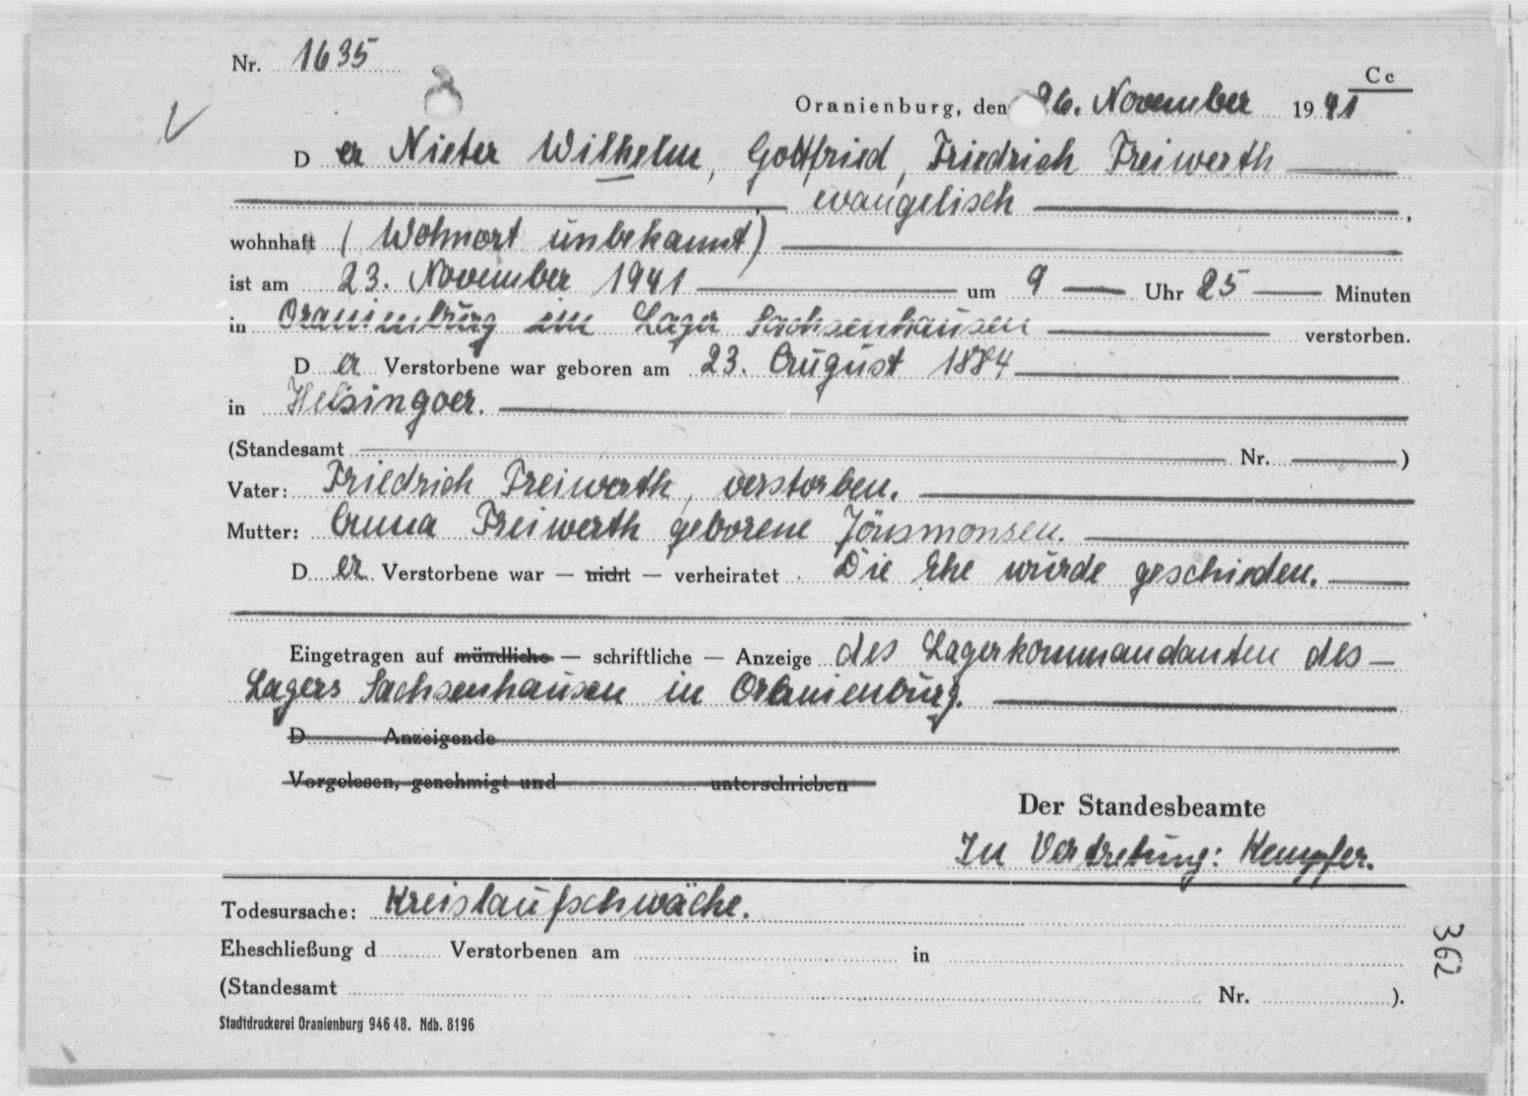 Nr. 1635
Cc
Oranienburg, den 26. November 1941
D er Nieter Wilhelm, Gottfried, Friedrich Freiwerth
evangelisch,
wohnhaft (Wohnort unbekannt)
ist am 23. November 1941 um 9 Uhr 25 Minuten
in Oranienburg im Lager Sachsenhausen verstorben.
D er Verstorbene war geboren am 23. August 1884
in Helsingoer.
(Standesamt Nr. )
Vater: Friedrich Freiwerth, verstorben.
Mutter: Anna Freiwerth geborene Jönsmonsen.
D er Verstorbene war — nicht — verheiratet. Die Ehe wurde geschieden.
Eingetragen auf mündliche — schriftliche — Anzeige des Lagerkommandanten des
Lagers Sachsenhausen in Oranienburg.
D Anzeigende
Vorgelesen, genehmigt und unterschrieben
Der Standesbeamte
In Vertretung: Kempfer.
Todesursache: Kreislaufschwäche.
Eheschließung d Verstorbenen am in
(Standesamt Nr. ).
Stadtdruckerei Oranienburg 946 48. Ndb. 8196
362